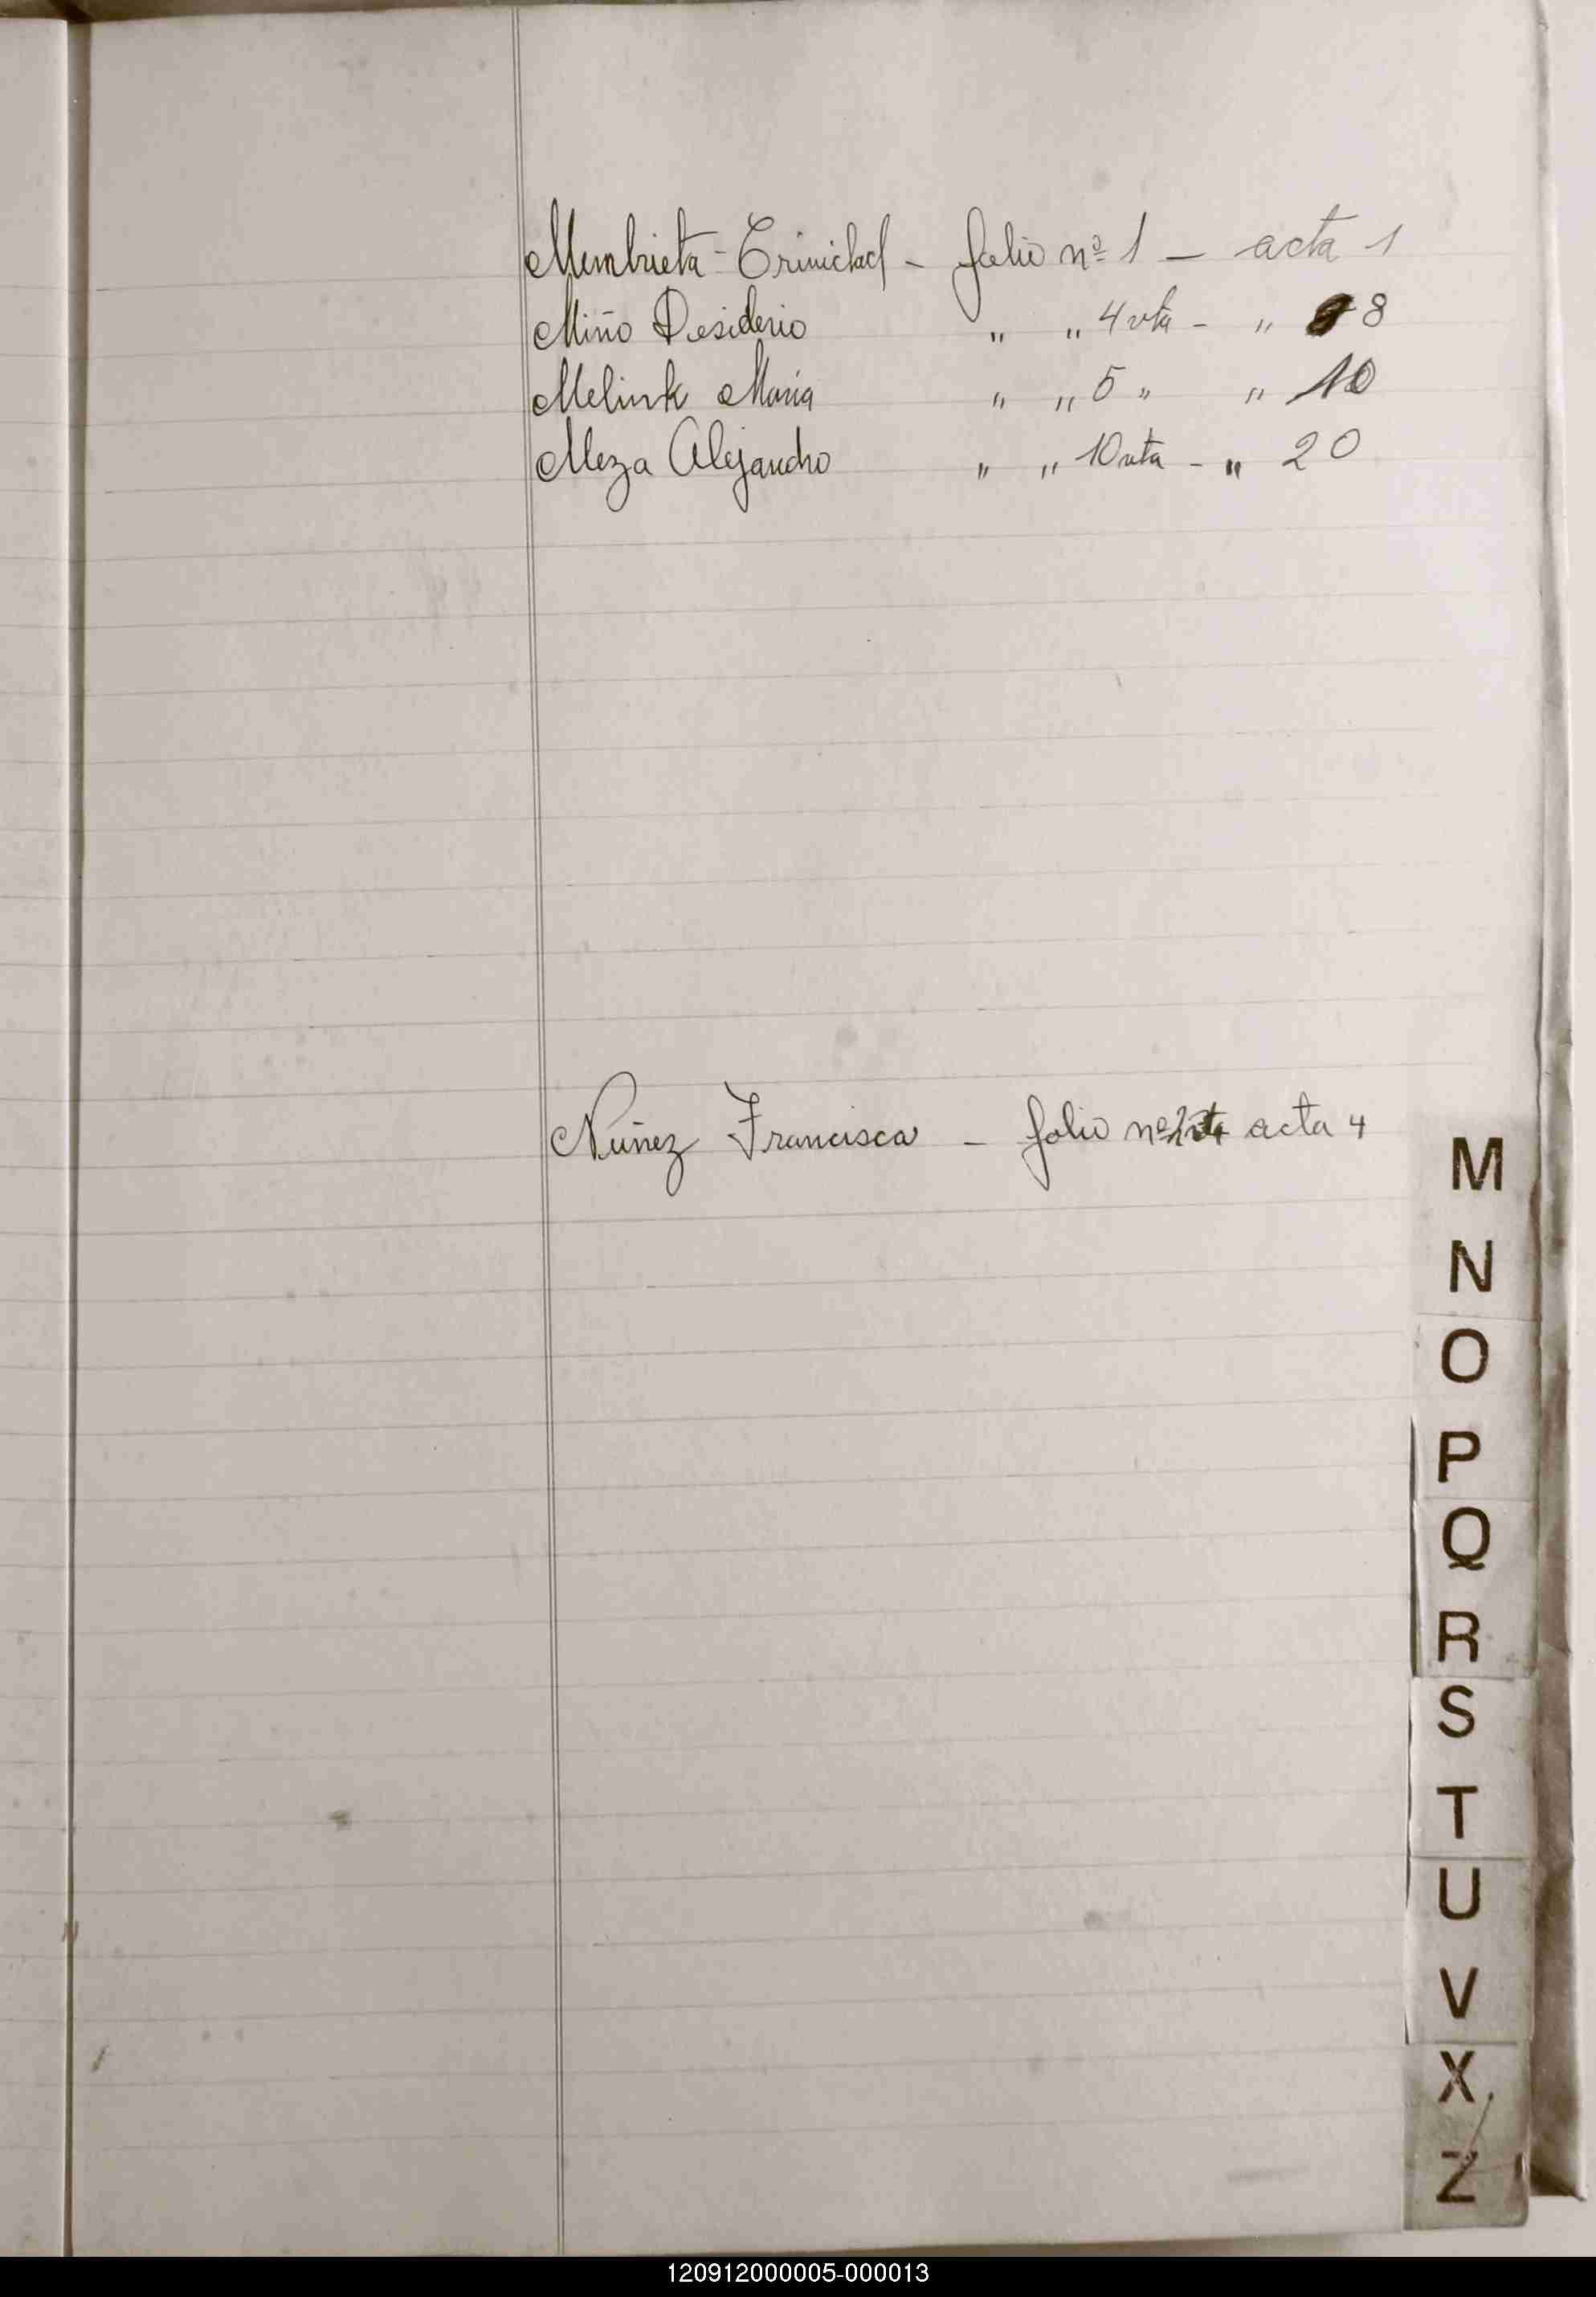 Membrieta - Trinidad - folio nº 1 - acta 1
Miño Desiderio " " 4 vta - " 8
Melink María " " 5 " " 10
Meza Alejandro " " 10 vta - " 20
Nuñez Francisca - folio nº 2 vta acta 4
M
N
O
P
Q
R
S
T
U
V
X
Z
120912000005-000013